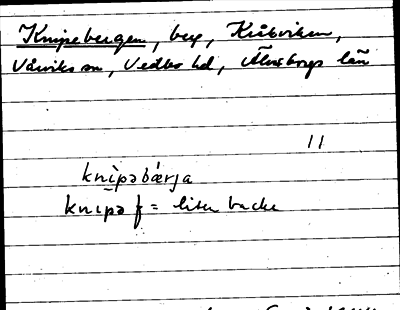 Knipebergen, berg, Kråkviken,
Vårviks sn, Vedbo hd, Älvsborgs län
11
knìpəbǽrja
knɩpə f = liten backe